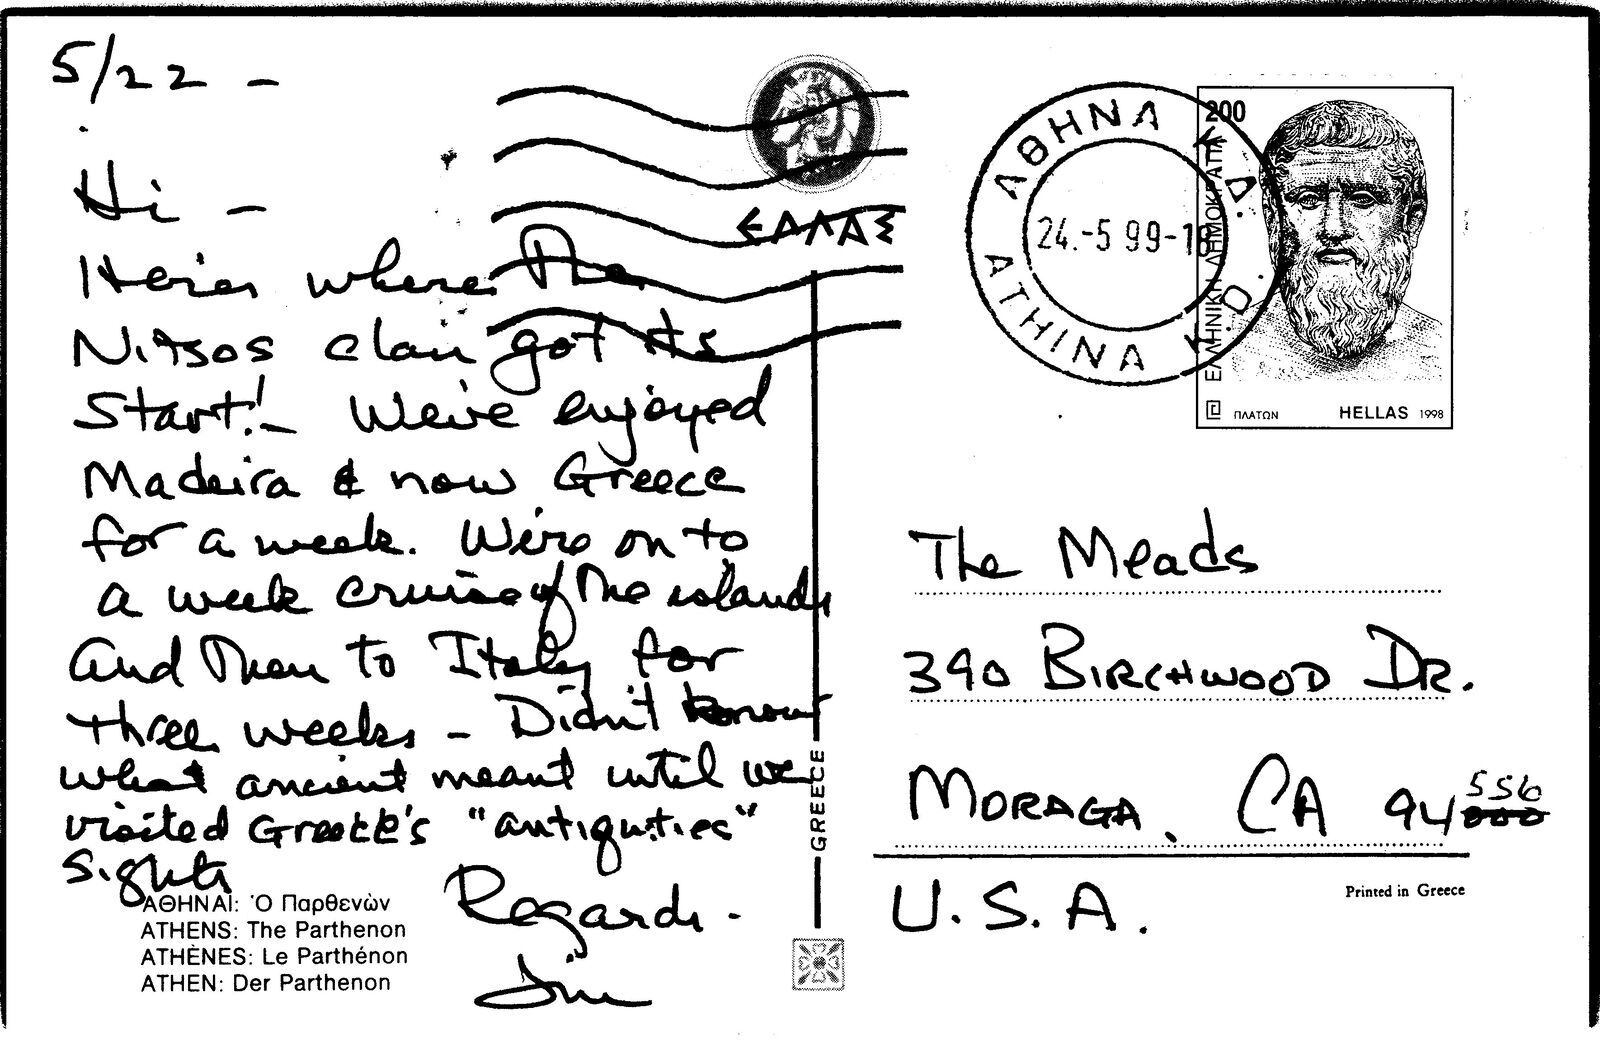 5/22 -
Hi -
Here's where the
Nitsos clan got its
Start! - We've enjoyed
Madeira & now Greece
for a week. We're on to
a week cruise of the islands
and then to Italy for
three weeks - Didn't know
what ancient meant until we
visited Greece's "antiquities"
sights
Regards -
Jim
ΑΘΗΝΑΙ: Ὁ Παρθενὼν
ATHENS: The Parthenon
ATHÈNES: Le Parthénon
ATHEN: Der Parthenon
ΕΛΛΑΣ
GREECE
ΑΘΗΝΑ Κ.Δ.
24.-5 99-18
ATHINA K.D.
200
ΕΛΛΗΝΙΚΗ ΔΗΜΟΚΡΑΤΙΑ
ΠΛΑΤΩΝ HELLAS 1998
The Meads
390 BIRCHWOOD DR.
MORAGA, CA 94556
U.S.A.
Printed in Greece